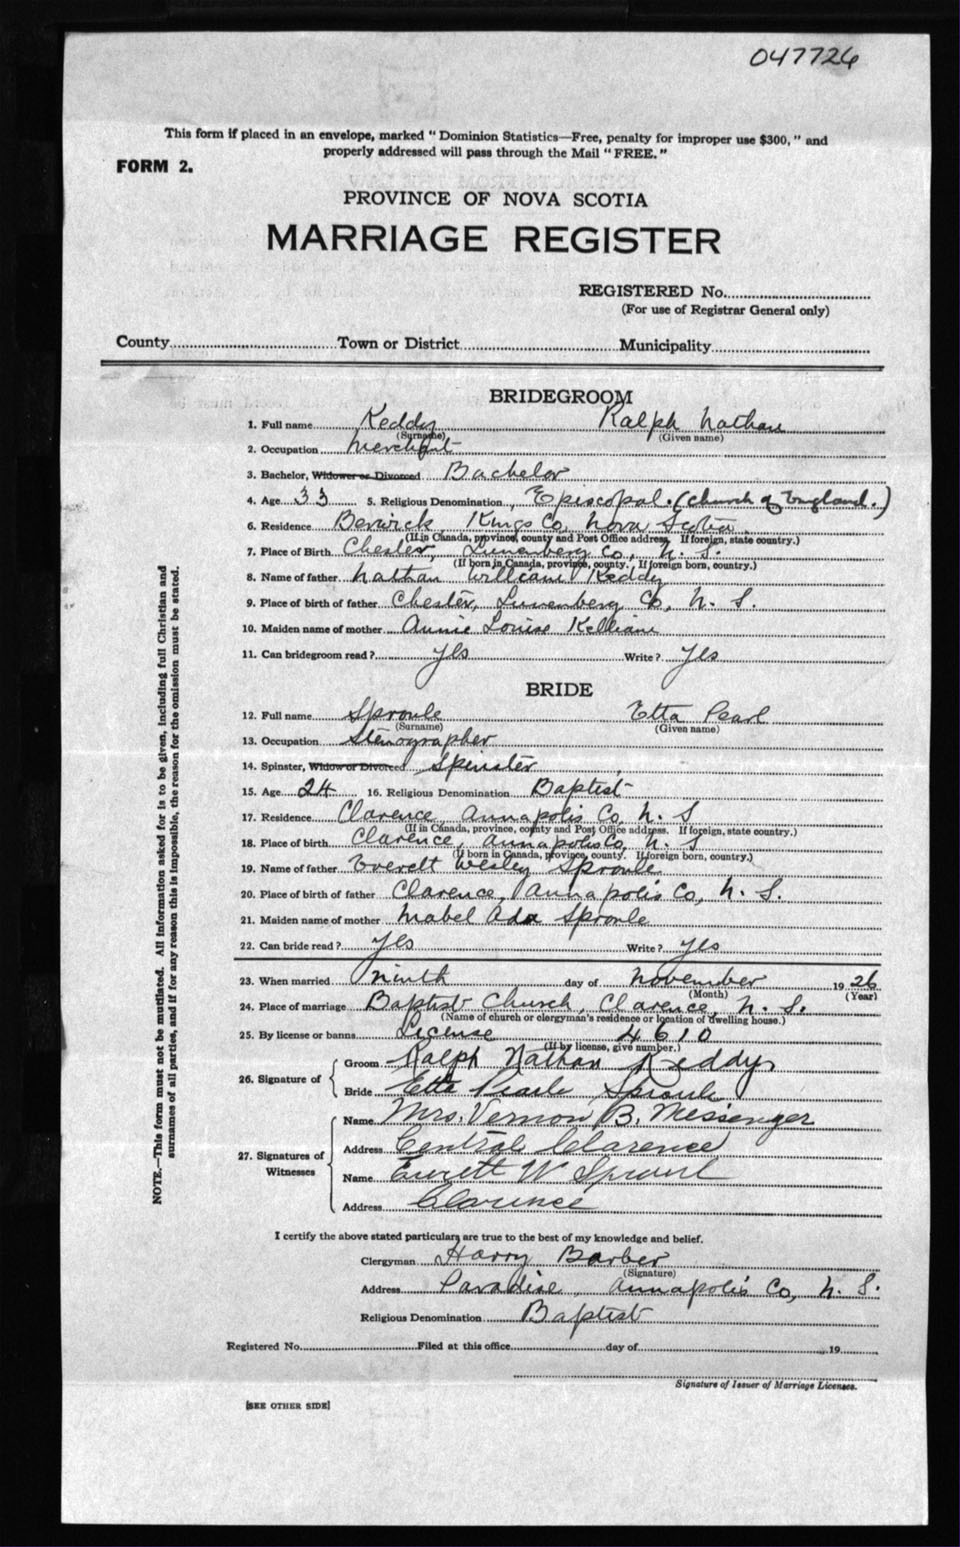 047726
This form if placed in an envelope, marked "Dominion Statistics—Free, penalty for improper use $300," and
properly addressed will pass through the Mail "FREE."
FORM 2.
PROVINCE OF NOVA SCOTIA
MARRIAGE REGISTER
REGISTERED No.
(For use of Registrar General only)
County Town or District Municipality
BRIDEGROOM
1. Full name Keddy Ralph Nathan
(Surname) (Given name)
2. Occupation Merchant
3. Bachelor, Widower or Divorced Bachelor
4. Age 33 5. Religious Denomination Episcopal. (Church of England.)
6. Residence Berwick, Kings Co, Nova Scotia
(If in Canada, province, county and Post Office address. If foreign, state country.)
7. Place of Birth Chester, Lunenberg Co, N. S.
(If born in Canada, province, county. If foreign born, country.)
8. Name of father Nathan William Keddy
9. Place of birth of father Chester, Lunenberg Co, N. S.
10. Maiden name of mother Annie Louise
11. Can bridegroom read? Yes Write? Yes
BRIDE
12. Full name Sproule Etta Pearl
(Surname) (Given name)
13. Occupation Stenographer
14. Spinster, Widow or Divorced Spinster
15. Age 24 16. Religious Denomination Baptist
17. Residence Clarence, Annapolis Co, N. S
(If in Canada, province, county and Post Office address. If foreign, state country.)
18. Place of birth Clarence, Annapolis Co, N. S
(If born in Canada, province, county. If foreign born, country.)
19. Name of father Everett Wesley Sproule
20. Place of birth of father Clarence, Annapolis Co, N. S.
21. Maiden name of mother Mabel Ada Sproule
22. Can bride read? Yes Write? Yes
23. When married Ninth day of November 1926
(Month) (Year)
24. Place of marriage Baptist Church, Clarence, N. S.
(Name of church or clergyman's residence or location of dwelling house.)
25. By license or banns License 4610
(If by license, give number.)
26. Signature of
Groom Ralph Nathan Keddy
Bride Etta Pearle Sproule
27. Signatures of Witnesses
Name Mrs. Vernon B. Messenger
Address Central Clarence
Name Everett W Sproul
Address Clarence
I certify the above stated particulars are true to the best of my knowledge and belief.
Clergyman Harry Barber
(Signature)
Address Paradise, Annapolis Co, N. S.
Religious Denomination Baptist
Registered No. Filed at this office day of 19
Signature of Issuer of Marriage Licenses.
[SEE OTHER SIDE]
NOTE.—This form must not be mutilated. All information asked for is to be given, including full Christian and
surnames of all parties, and if for any reason this is impossible, the reason for the omission must be stated.